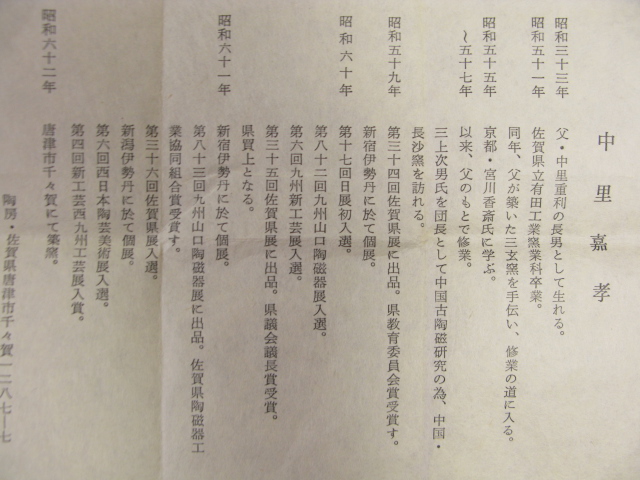 中里嘉孝
昭和三十三年　父・中里重利の長男として生れる。
昭和五十一年　佐賀県立有田工業窯業科卒業。
同年、父が築いた三玄窯を手伝い、修業の道に入る。
昭和五十五年　京都・宮川香斎氏に学ぶ。
〜五十七年　以来、父のもとで修業。
三上次男氏を団長として中国古陶磁研究の為、中国・
長沙窯を訪れる。
昭和五十九年　第三十四回佐賀県展に出品。県教育委員会賞受賞す。
新宿伊勢丹に於て個展。
昭和六十年　第十七回日展初入選。
第八十二回九州山口陶磁器展入選。
第六回九州新工芸展入選。
第三十五回佐賀県展に出品。県議会議長賞受賞。
県買上となる。
昭和六十一年　新宿伊勢丹に於て個展。
第八十三回九州山口陶磁器展に出品。佐賀県陶磁器工
業協同組合賞受賞す。
第三十六回佐賀県展入選。
新潟伊勢丹に於て個展。
第六回西日本陶芸美術展入選。
第四回新工芸西九州工芸展入賞。
昭和六十二年　唐津市千々賀にて築窯。
陶房・佐賀県唐津市千々賀一二八七―七